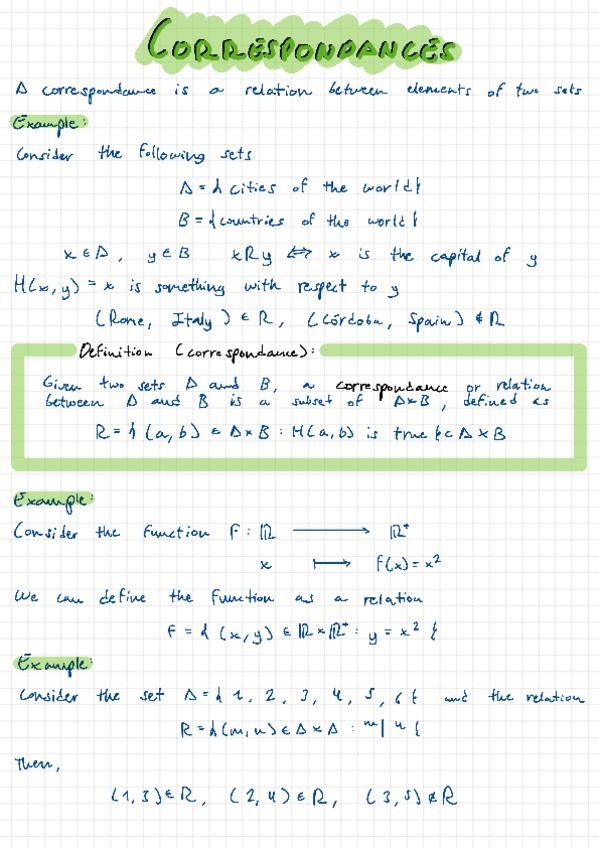 CORRESPONDANCES
A correspondance is a relation between elements of two sets
Example:
Consider the following sets
A = { cities of the world }
B = { countries of the world }
x ∈ A, y ∈ B xRy ⟺ x is the capital of y
H(x, y) = x is something with respect to y
(Rome, Italy) ∈ R, (Córdoba, Spain) ∉ R
Definition (correspondance):
Given two sets A and B, a correspondance or relation
between A and B is a subset of A×B, defined as
R = { (a, b) ∈ A×B : H(a, b) is true } ⊂ A×B
Example:
Consider the function F : ℝ ⟶ ℝ⁺
x ⟼ f(x) = x²
We can define the function as a relation
F = { (x, y) ∈ ℝ×ℝ⁺ : y = x² }
Example:
Consider the set A = { 1, 2, 3, 4, 5, 6 } and the relation
R = { (m, n) ∈ A×A : m | n }
Then,
(1, 3) ∈ R, (2, 4) ∈ R, (3, 5) ∉ R